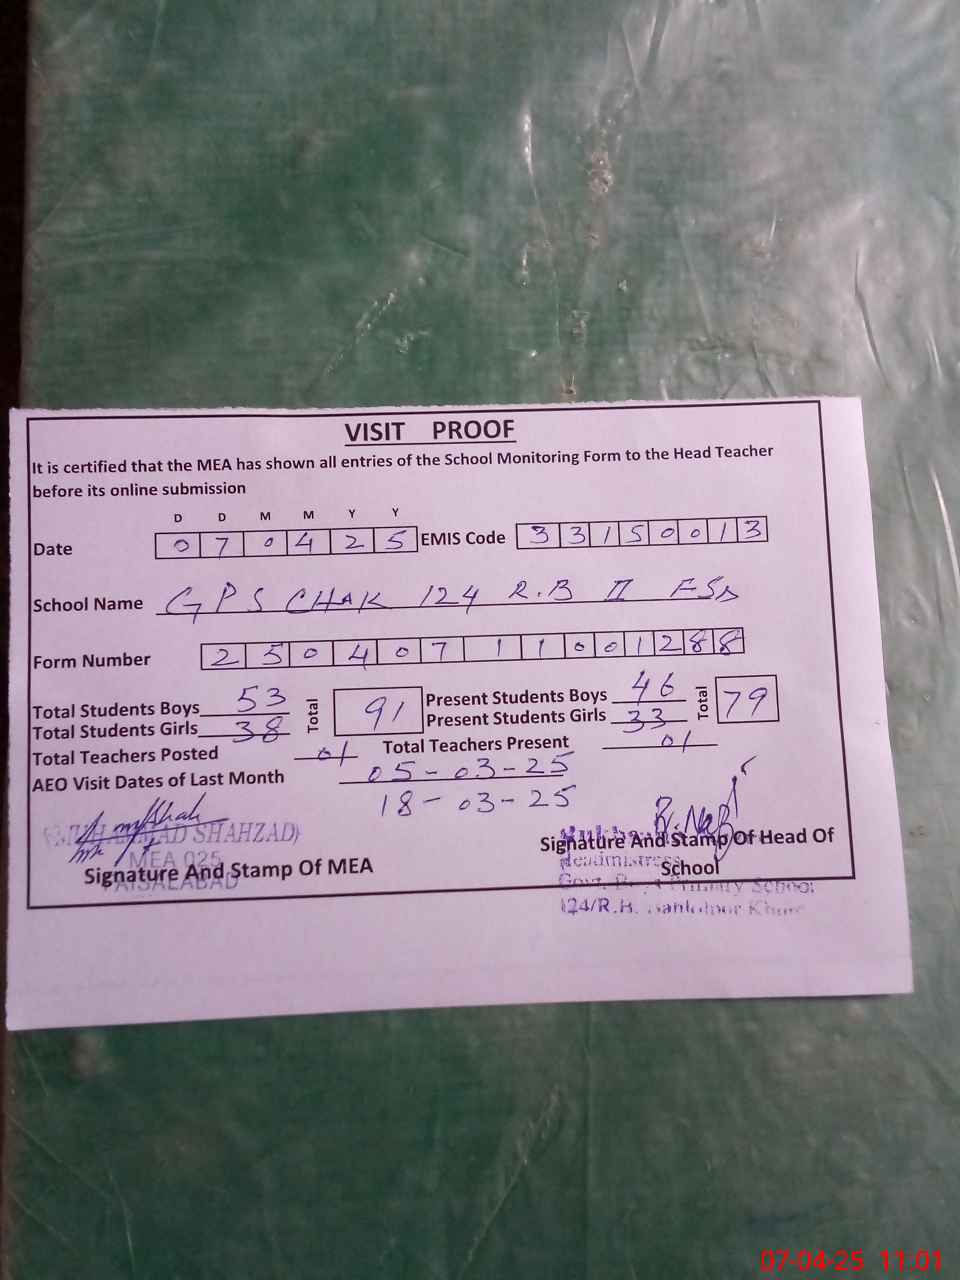 VISIT PROOF
It is certified that the MEA has shown all entries of the School Monitoring Form to the Head Teacher
before its online submission
D D M M Y Y
Date 0 7 0 4 2 5 EMIS Code 3 3 1 5 0 0 1 3
School Name GPS CHAK 124 R.B II FSD
Form Number 2 5 0 4 0 7 1 1 0 0 1 2 8 8
Total Students Boys 53 Total 91 Present Students Boys 46 Total 79
Total Students Girls 38 Present Students Girls 33
Total Teachers Posted 01 Total Teachers Present 01
AEO Visit Dates of Last Month 05-03-25
18-03-25
(MUHAMMAD SHAHZAD)
MEA 025
FAISALABAD
Signature And Stamp Of MEA
Signature And Stamp Of Head Of
School
Headmistress
Govt. Primary School
124/R.B.
07-04-25 11:01